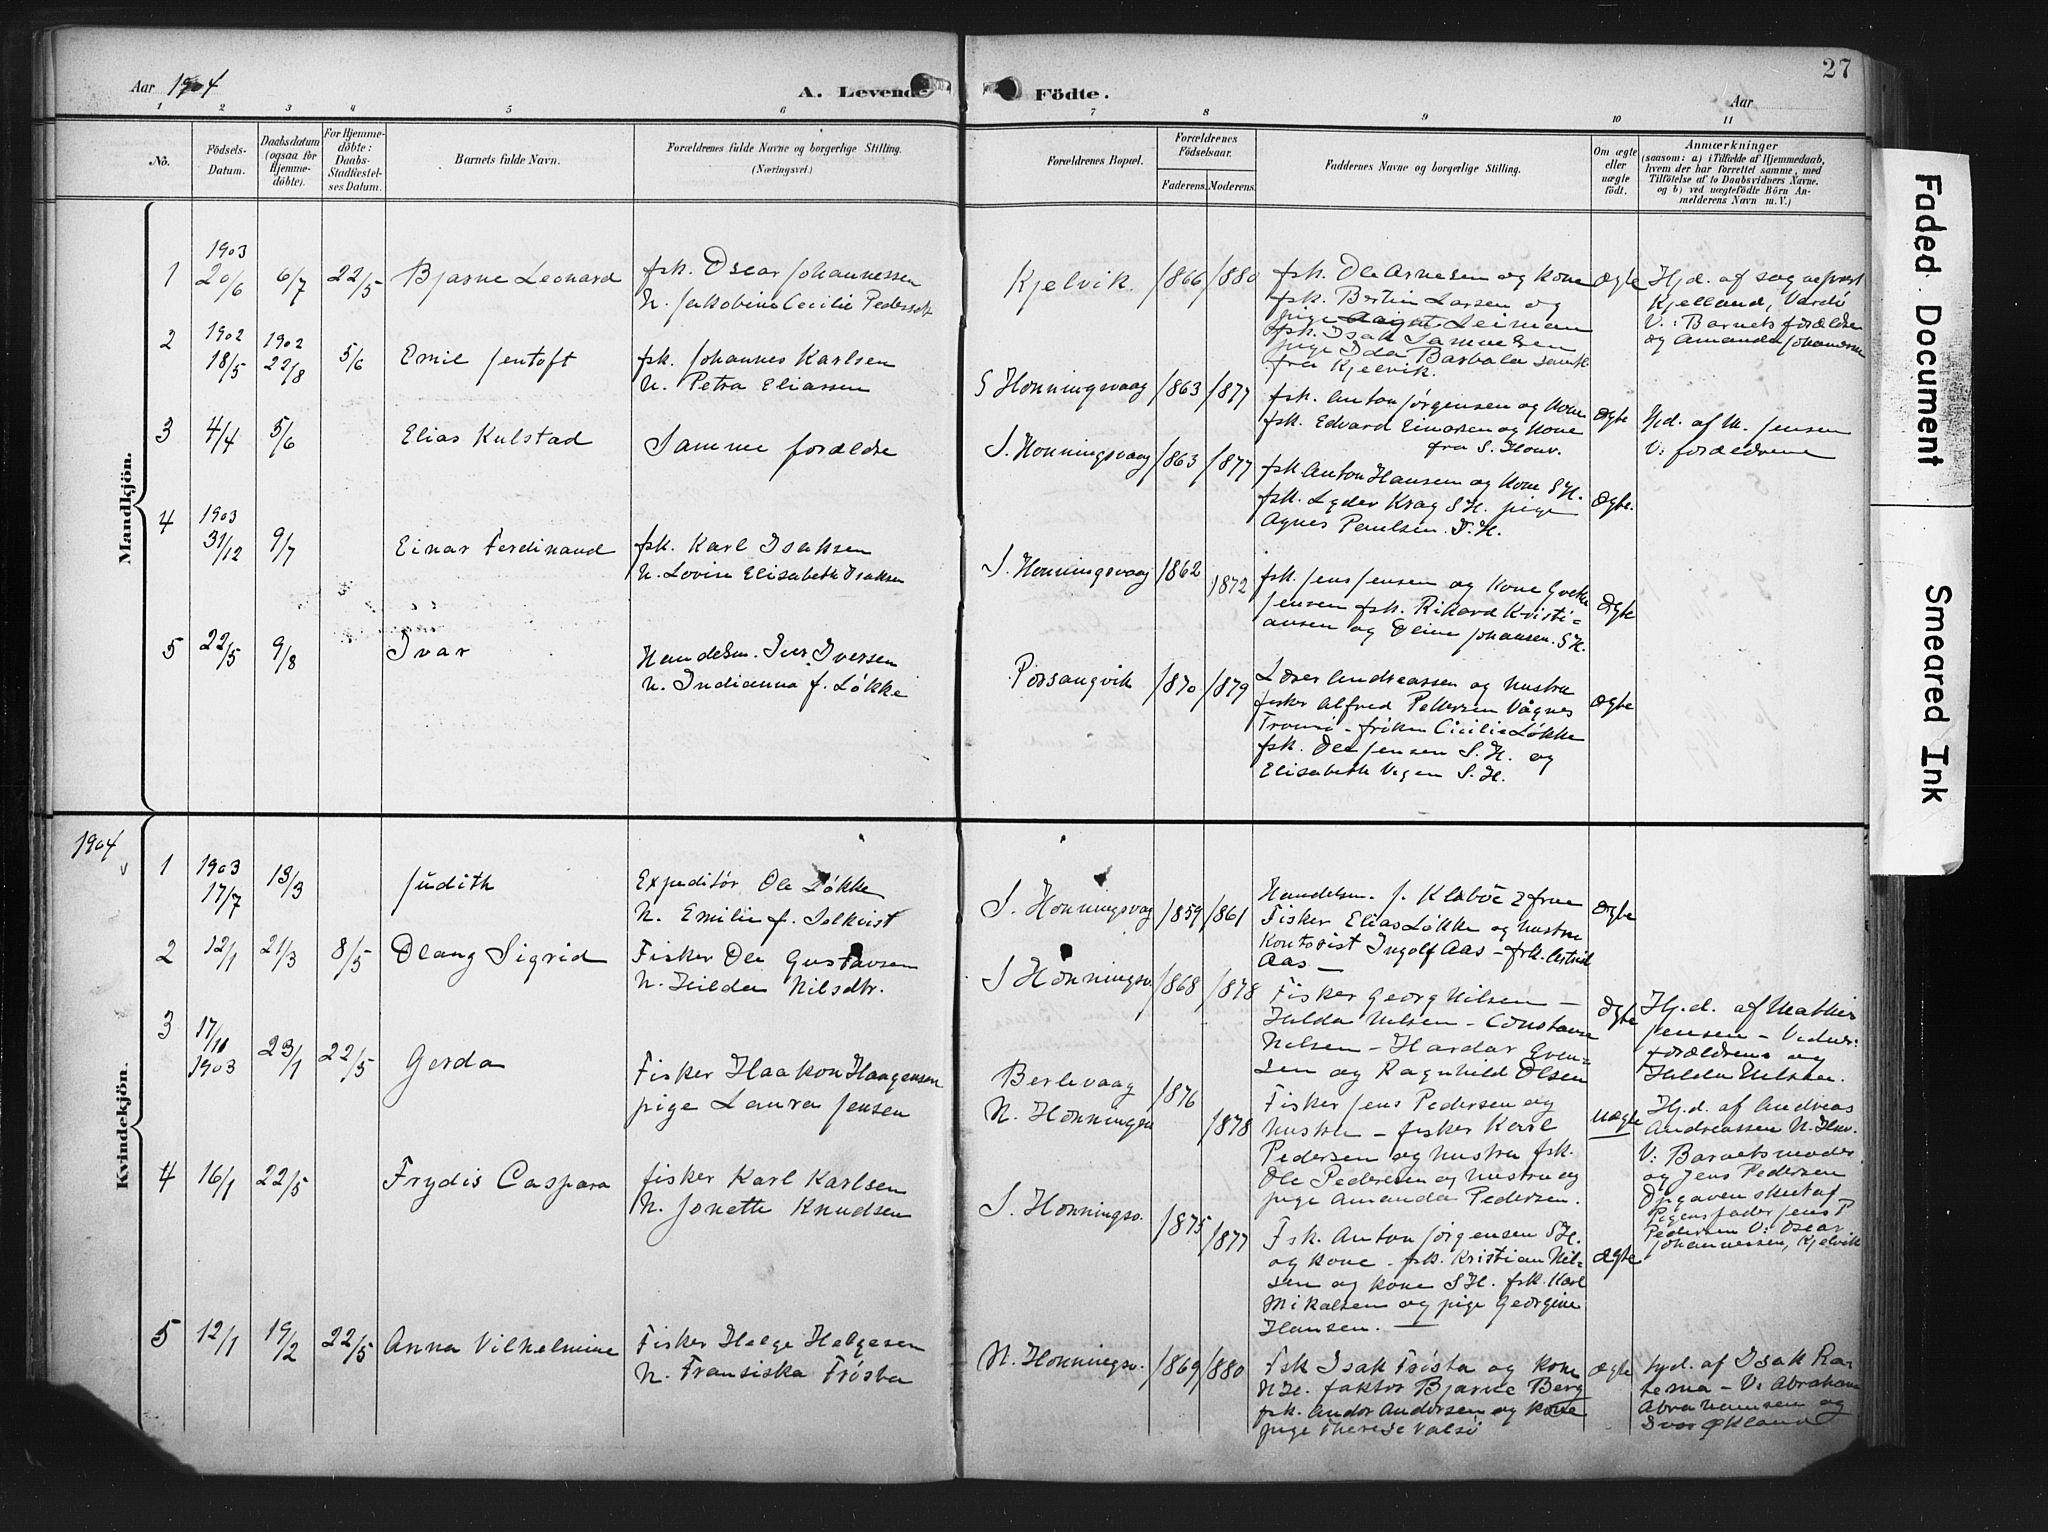 27
Aar 1904
A. Levende Födte.
Aar
1 2 3 4 5 6 7 8 9 10 11
No.
Födsels-Datum.
Daabsdatum (ogsaa for Hjemme-döbte).
For Hjemme-döbte: Daabs-Stadfæstel-ses Datum.
Barnets fulde Navn.
Forældrenes fulde Navne og borgerlige Stilling.
(Næringsvei.)
Forældrenes Bopæl.
Forældrenes Födselsaar.
Faderens. Moderens.
Faddernes Navne og borgerlige Stilling.
Om ægte eller uægte födt.
Anmærkninger
(saasom: a) i Tilfælde af Hjemmedaab,
hvem der har forrettet samme, med
Tilföielse af to Daabsvidners Navne,
og b) ved uægtefödte Börn An-
melderens Navn m. V.)
Mandkjön.
1 1903 20/6 6/7 22/5 Bjarne Leonard
fsk. Oscar Johannessen
h. Jakobine Cecilie
Kjelvik 1866 1880
fsk. Ole Arnesen og kone
fsk. Bertin Larsen og
pige Leiman
fsk. Isak Samuelsen
pige Ida Barbala
fra Kjelvik.
Ægte
Hjd. af sogneprest
Kjelland, Vardö
V: Barnets forældre
og Amanda Johannesen
2 1902 18/5 1902 22/8 5/6 Emil Jentoft
fsk. Johannes Karlsen
h. Petra Eliassen
S Honningsvaag 1863 1877
fsk. Anton Jørgensen og kone
fsk. Edvard Einarsen og kone
fra S. Honv.
Ægte
Hd. af M. Jensen
V: forældrene
3 4/4 5/6 Elias Kulstad
Samme forældre
S. Honningsvaag 1863 1877
fsk. Anton Hansen og kone S H.
fsk. Lyder Krag S H. pige
Agnes Paulsen. S. H.
Ægte.
4 1903 31/12 9/7 Einar Ferdinand
fsk. Karl Isaksen
h. Lovise Elisabeth Isaksen
S. Honningsvaag 1862 1872
fsk. Jens Jensen og kone
Jensen fsk. Rikard Kristi-
ansen og Oline Johansen. S H.
Ægte
5 22/5 9/8 Ivar
Handelsm. Iver Iversen
h. Indianna f. Løkke
Porsangvik 1870 1879
Lærer Andreassen og hustru
fisker Alfred Pettersen Vågnes
Tromsö - frøken Cicilie Løkke
fsk. Ole Jensen S. H. og
Elisabeth Vegen S. H.
Ægte
1904
Kvindekjön.
1 1903 17/7 13/3 Judith
Expeditör Ole Løkke
h. Emilie f. Selkvist
S. Honningsvag 1859 1861
Handelsm. J. Klaböe & frue
Fisker Elias Løkke og hustru
Kontorist Ingolf Aas - frk. Astrid
Aas -
Ægte
2 12/1 21/3 8/5 Olaug Sigrid
Fisker Ole Gustavsen
h. Hilda Nilsdtr.
S Honningsv. 1868 1878
Fisker Georg Nilsen -
Hulda Nilsen - Constanse
Nilsen - Hardar Even-
sen og Ragnhild Olsen
Ægte
Hj.d. af Mathis
Jensen - Vidner:
forældrene og
Hulda Nilsen.
3 17/11 1903 23/1 22/5 Gerda
Fisker Haakon Haagensen
pige Laura Jensen
Berlevaag 1876
N. Honningen 1878
Fisker Jens Pedersen og
hustru - fisker Karl
Pedersen og hustru fsk.
Ole Pedersen og hustru og
pige Amanda Pedersen.
uægte
Hj.d. af Andreas
Andreassen N. Hov.
V: Barnets moder
og Jens Pedersen
Opgaven skeet af
Pigens fader Jens P
Pedersen V: Oscar
Johannessen, Kjelvik
4 16/1 22/5 Frydis Caspara
fisker Karl Karlsen
h. Jonette Knudsen
S. Honningsv. 1875 1877
Fsk. Anton Jørgensen S H.
og kone - fsk. Kristian Nil-
sen og kone S H. fsk. Karl
Mikalsen og pige Georgine
Hansen. -
Ægte
5 12/1 19/2 22/5 Anna Vilhelmine
Fisker Helge Helgesen
h. Fransiska Frösta
N. Honningsv. 1869 1880
Fsk Isak Frösta og kone
N H. faktor Bjarne Berg
fsk. Andor Andersen og kone
pige Therese Valsö
Ægte
Hjd. af Isak Ra-
tema - V: Abraham
Abrahamsen og
Ivar Økland
Faded Document
Smeared Ink